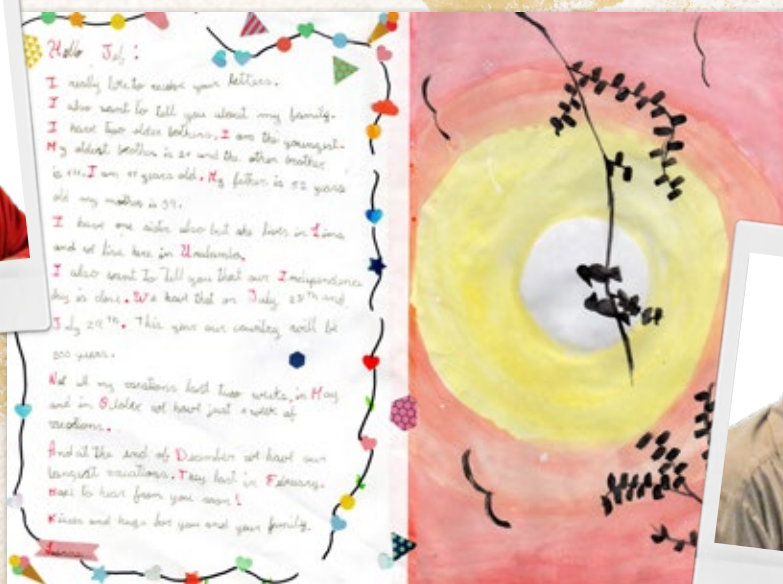 Hello Jef :
I really like to receive your letters.
I also want to tell you about my family.
I have two older brothers. I am the youngest.
My oldest brother is and the other brother
is I am years old. My father is 52 years
old my mother is
I have one sister also but she lives in Lima
and we live here in
I also want to Tell you that our Independence
day is close. We have that on July 28TH and
July 29TH. This year our country will be
200 years.
Not all my vacations last two weeks, in May
and in October we have just a week of
vacations.
And at the end of December we have our
longest vacations. They last in February.
to hear from you soon!
Kisses and hugs for you and your family.